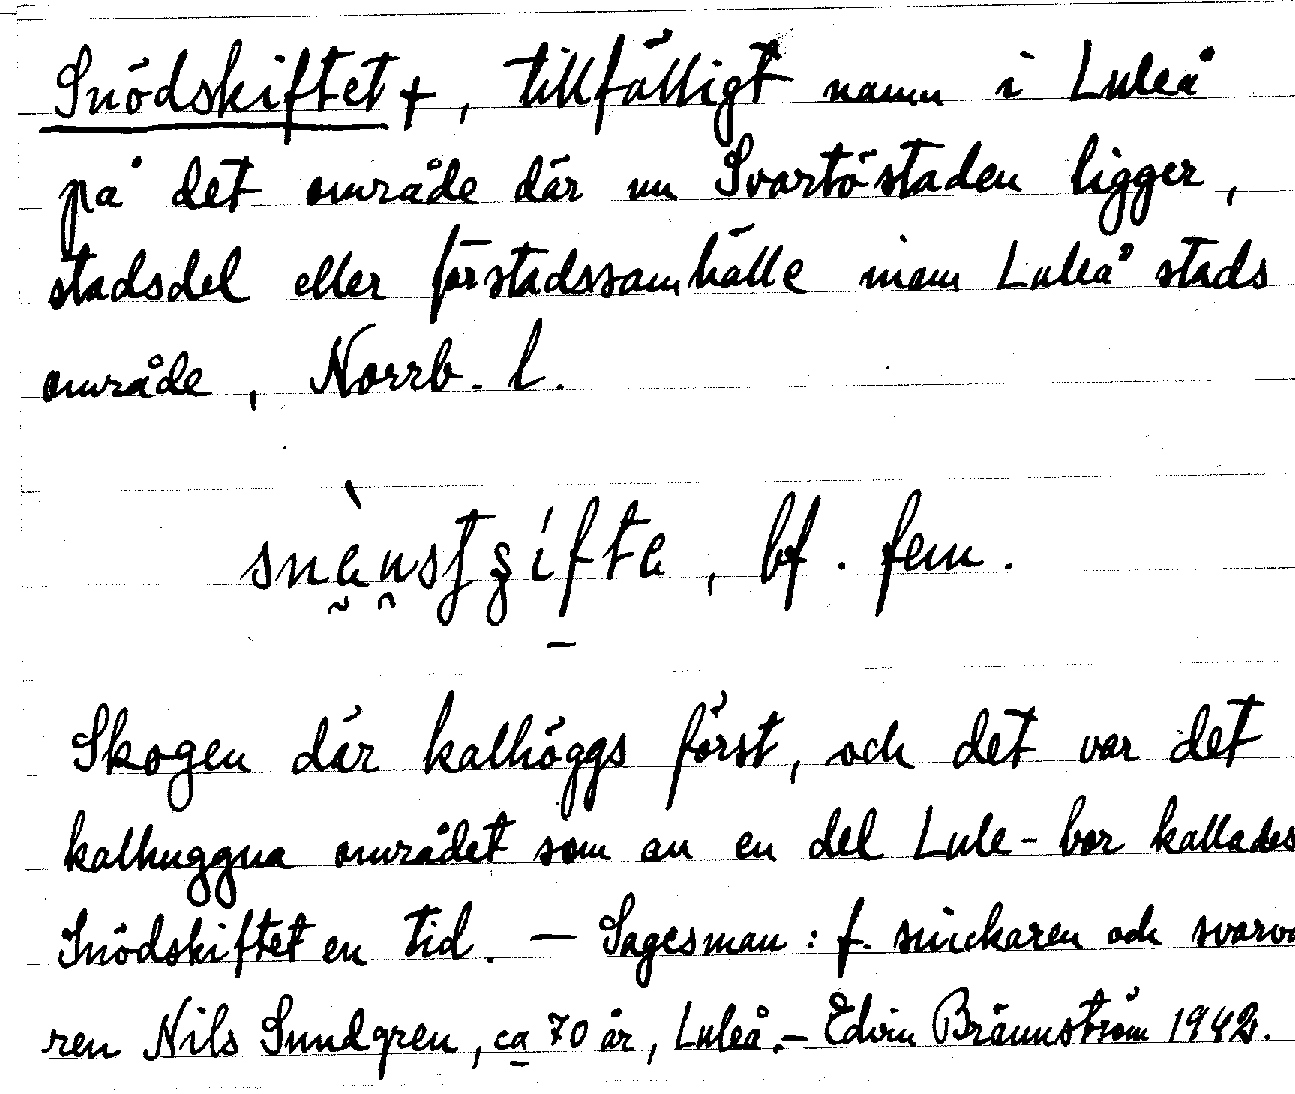 Snödskiftet +, tillfälligt namn i Luleå
på det område där nu Svartöstaden ligger,
stadsdel eller förstadssamhälle inom Luleå stads
område, Norrb. l.
bf. fem.
Skogen där kalhöggs först, och det var det
kalhuggna området som av en del Lule-bor kallades
Snödskiftet en tid. — Sagesman: f. snickaren och svarva
ren Nils Sundgren, ca 70 år, Luleå. — Edvin Brännström 1942.